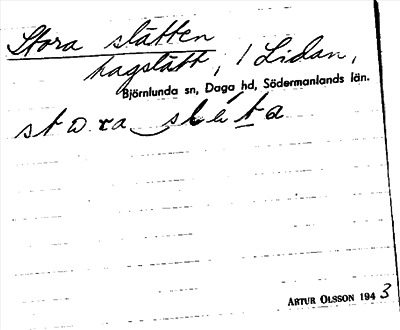 Stora slätten
hagslätt, / Lidan,
Björnlunda sn, Daga hd, Södermanlands län.
ARTUR OLSSON 1943